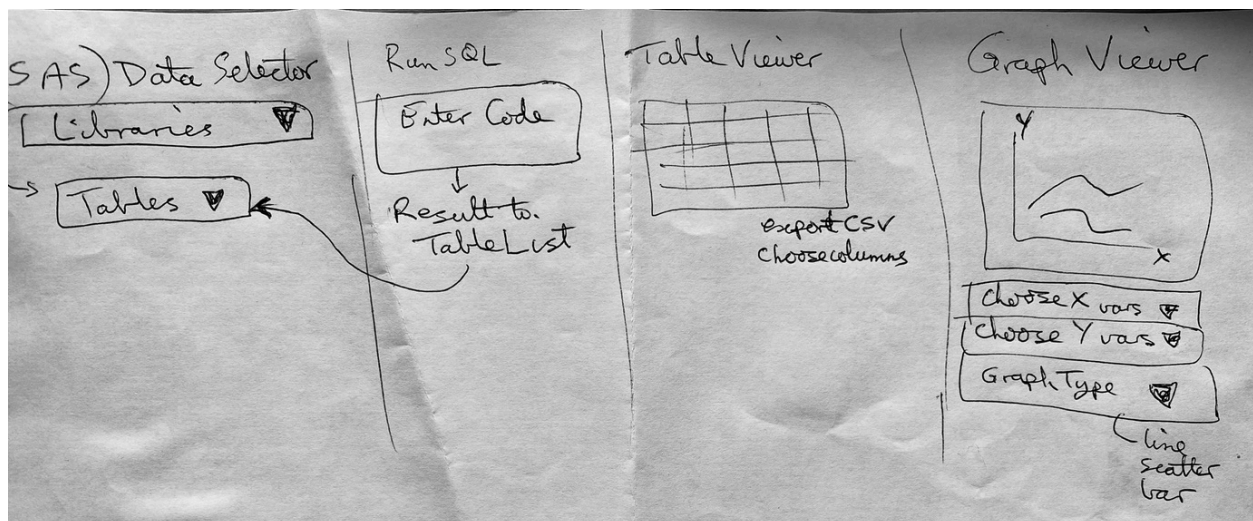 SAS) Data Selector
Libraries
Tables
Run SQL
Enter Code
Result to.
Table List
Table Viewer
export CSV
choose columns
Graph Viewer
Y
X
Choose X vars
Choose Y vars
Graph Type
line
scatter
bar